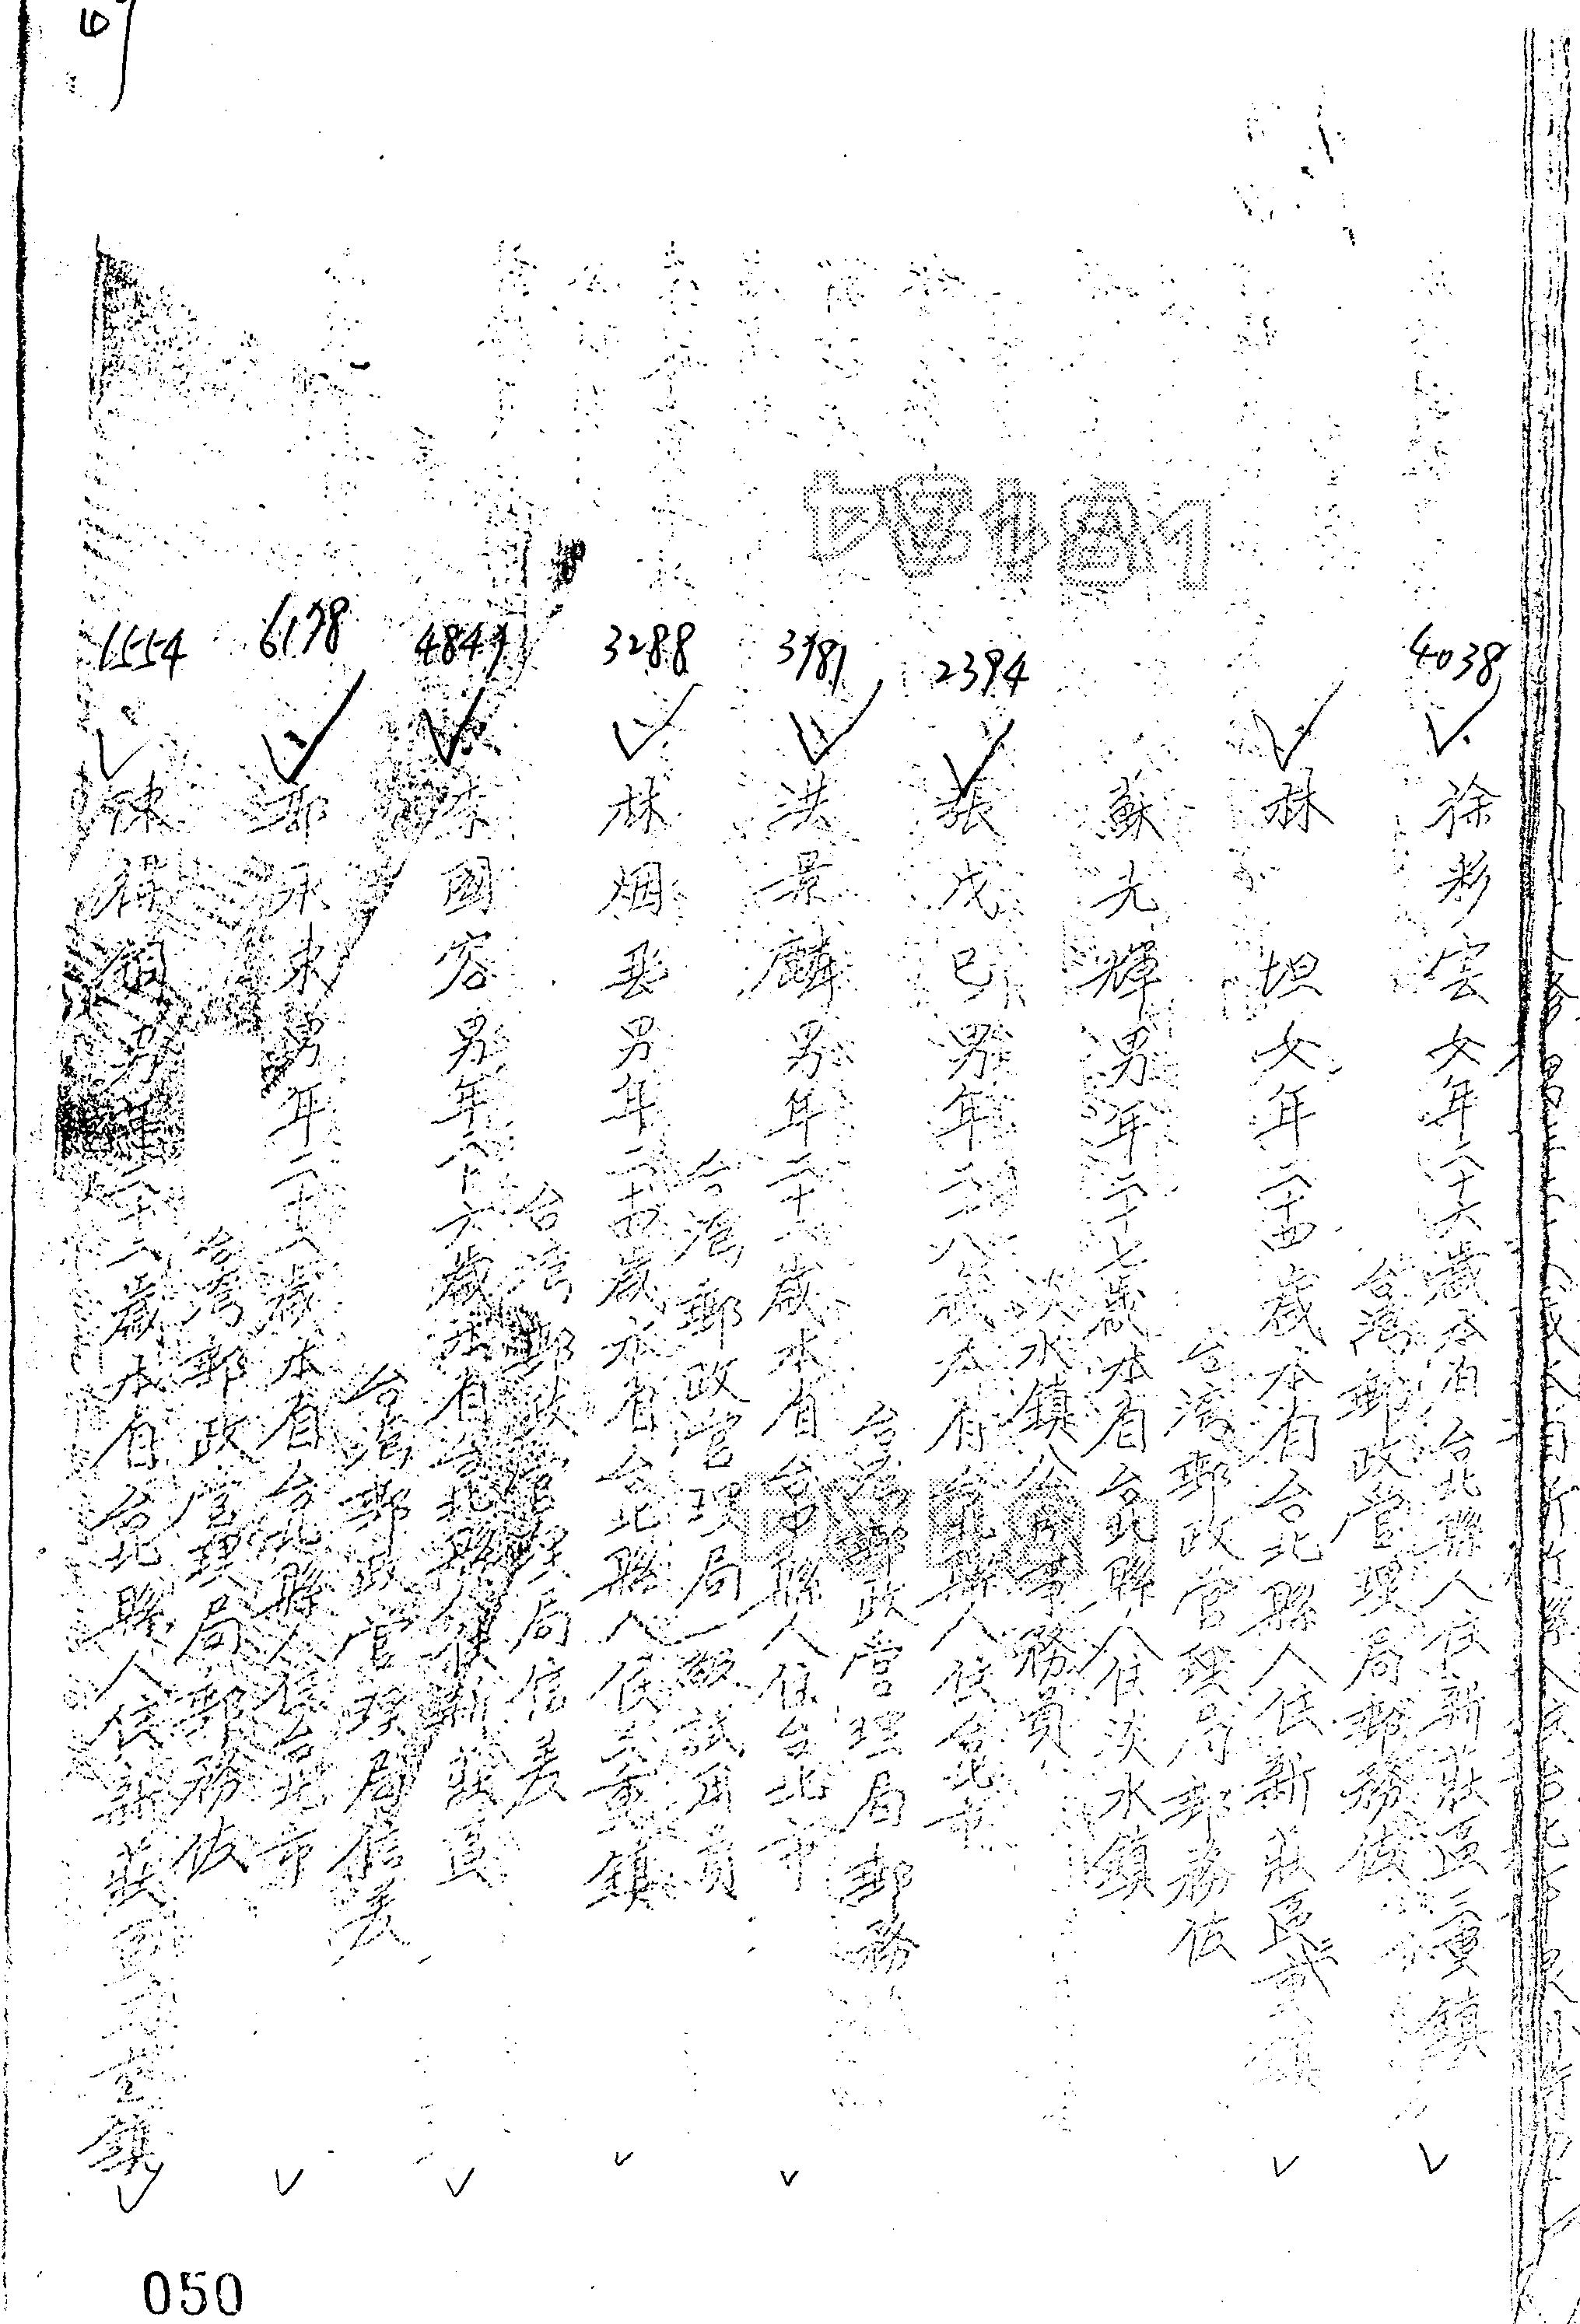 4038
徐彩雲女年二十六歲本省台北縣人住新莊區三重鎮
台灣郵政管理局郵務佐
林坦女年二十四歲本省台北縣人住新莊區三重鎮
台灣郵政管理局郵務佐
蘇光輝男年二十七歲本省台北縣人住淡水鎮
淡水鎮公所事務員
2394
張戊巳男年二八歲本省台北縣人住台北市
台灣郵政管理局郵務
3781
洪景麟男年二十一歲本省台中縣人住台北市
台灣郵政管理局一般試用員
3288
林烟丕男年二十四歲本省台北縣人住三重鎮
台灣郵政管理局信差
484
李國容男年二十六歲本省台北縣人住新莊區
台灣郵政管理局信差
6178
永東男年二十一歲本省台北縣人住台北市
台灣郵政管理局郵務佐
1554
陳 男年二十二歲本省台北縣人住新莊區三重鎮
050